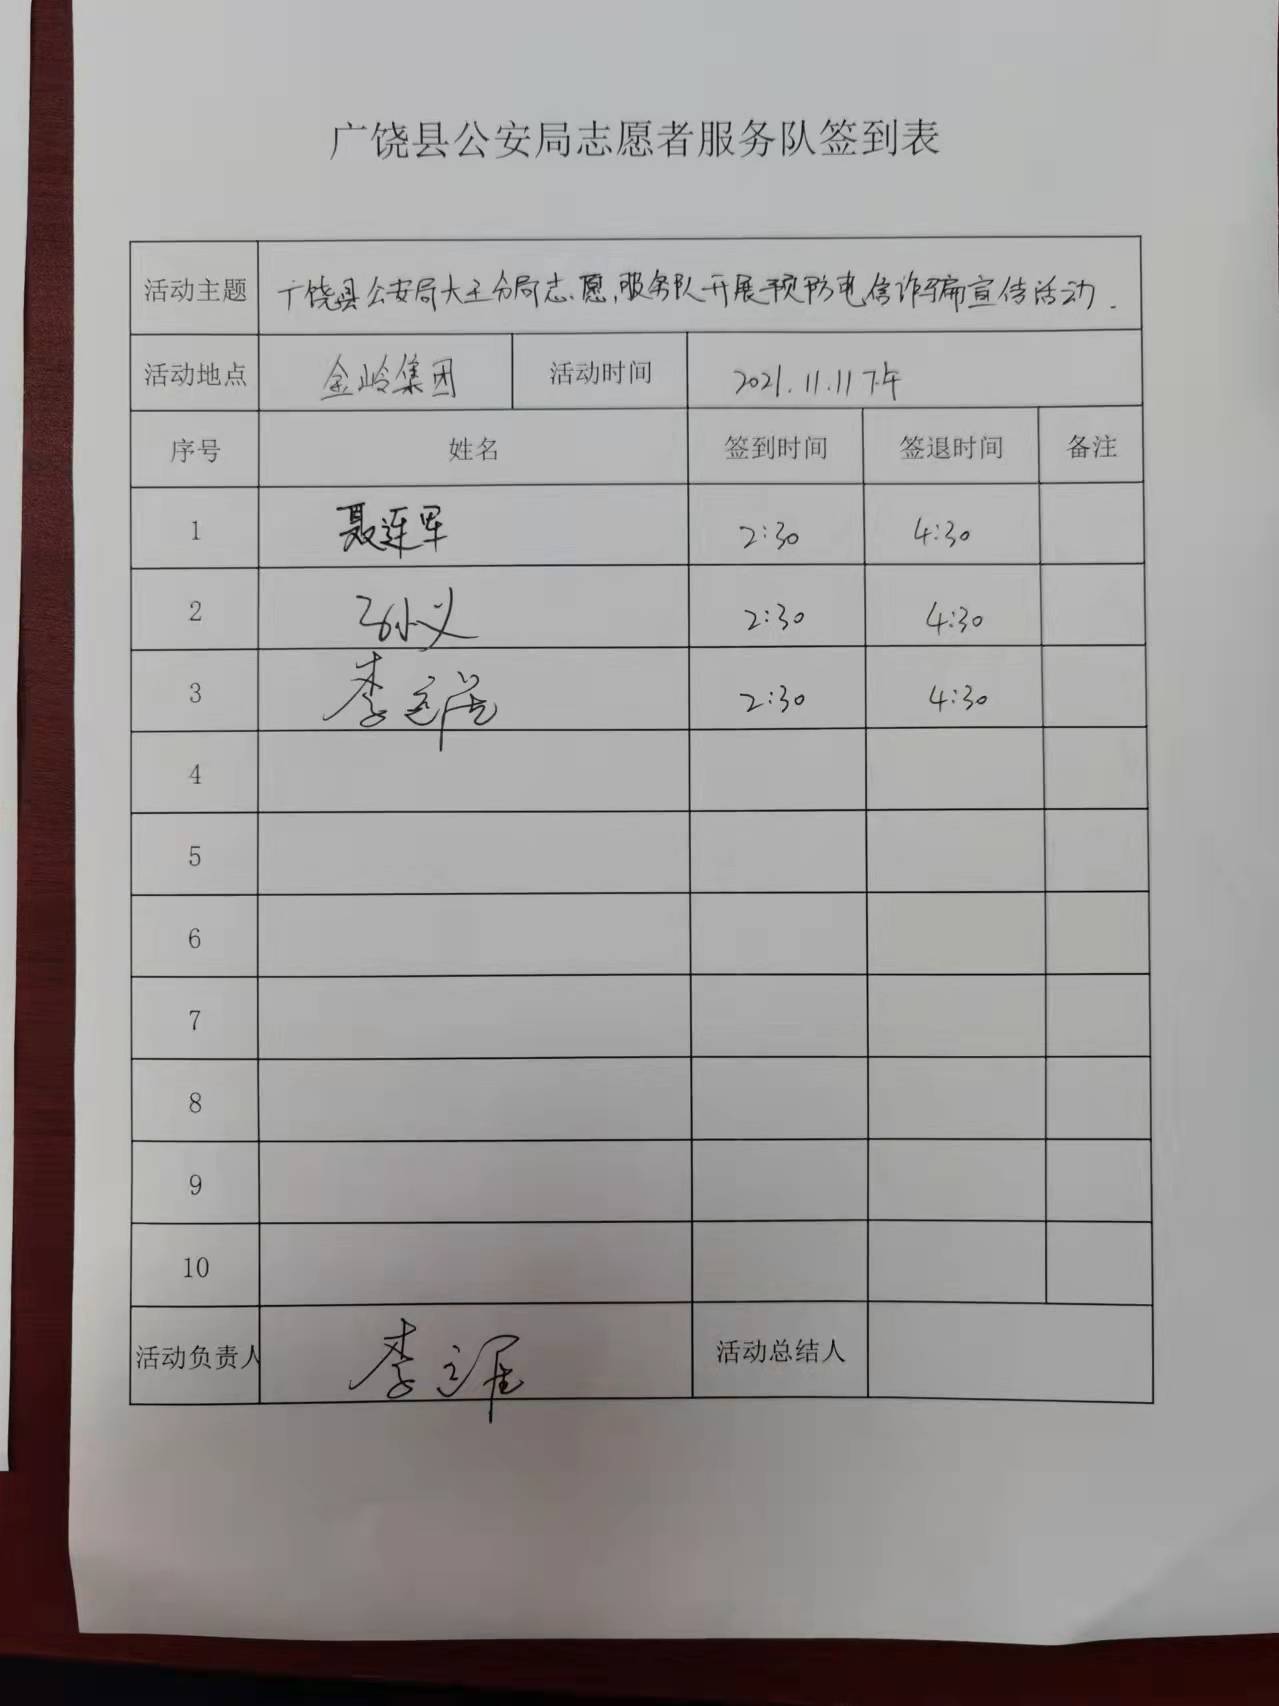 广饶县公安局志愿者服务队签到表
活动主题 广饶县公安局大王分局志愿服务队开展预防电信诈骗宣传活动.
活动地点 金岭集团 活动时间 2021.11.11下午
序号 姓名 签到时间 签退时间 备注
1 聂连军 2:30 4:30
2 2:30 4:30
3 李 2:30 4:30
4
5
6
7
8
9
10
活动负责人 李 活动总结人